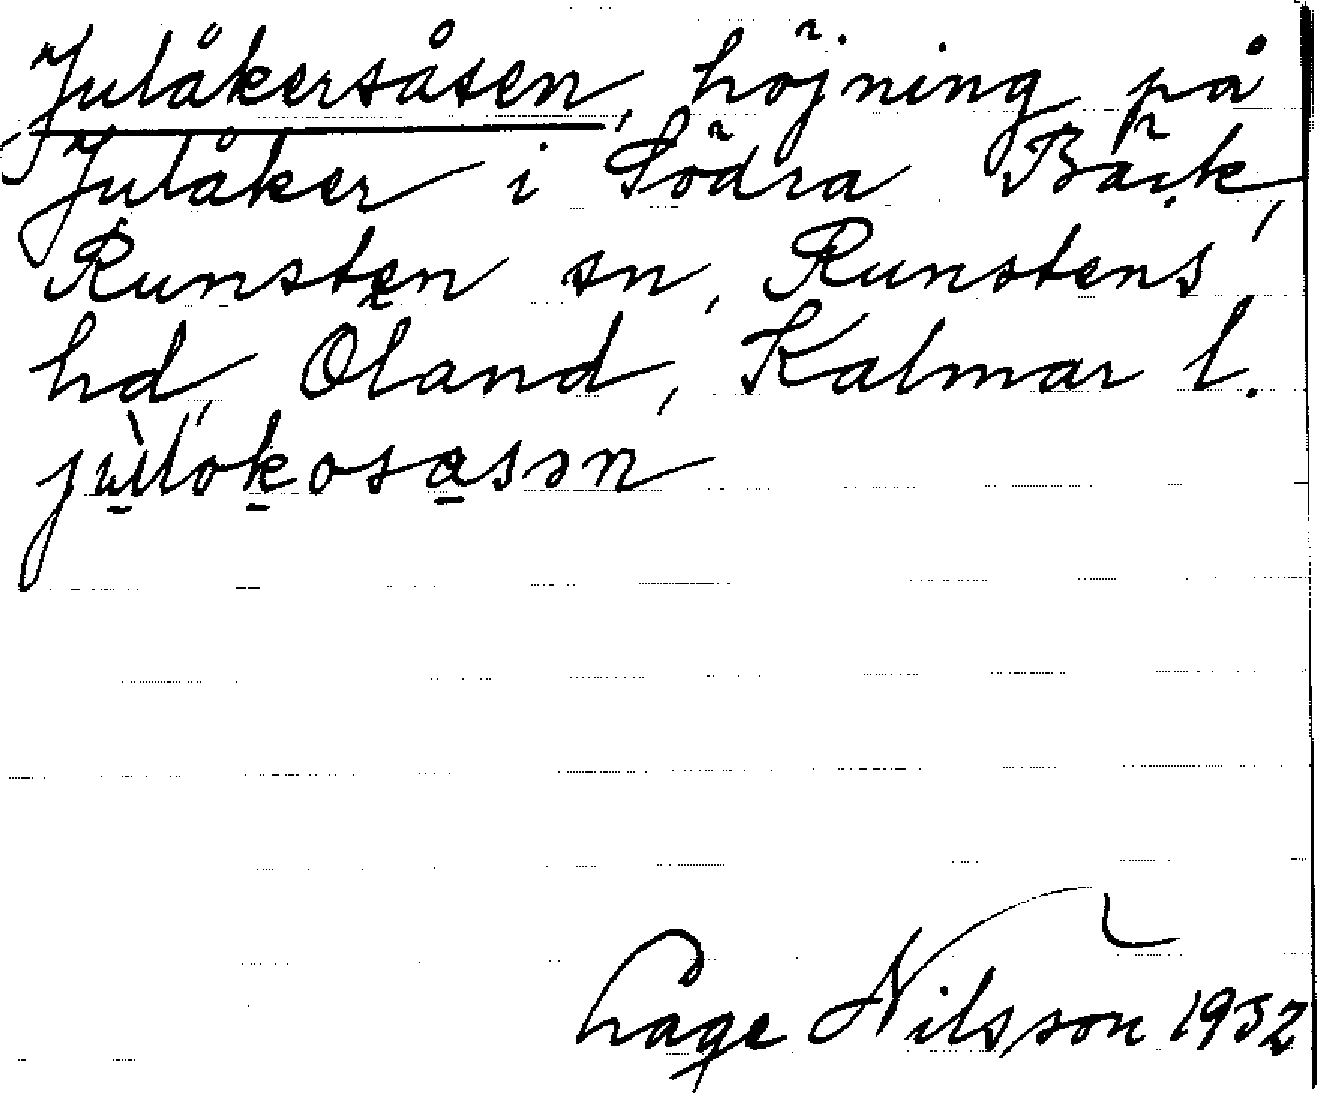 Julåkersåsen, höjning på
Julåker i Södra Bäck,
Runsten sn, Runstens
hd, Öland, Kalmar l.
Nilsson 1932